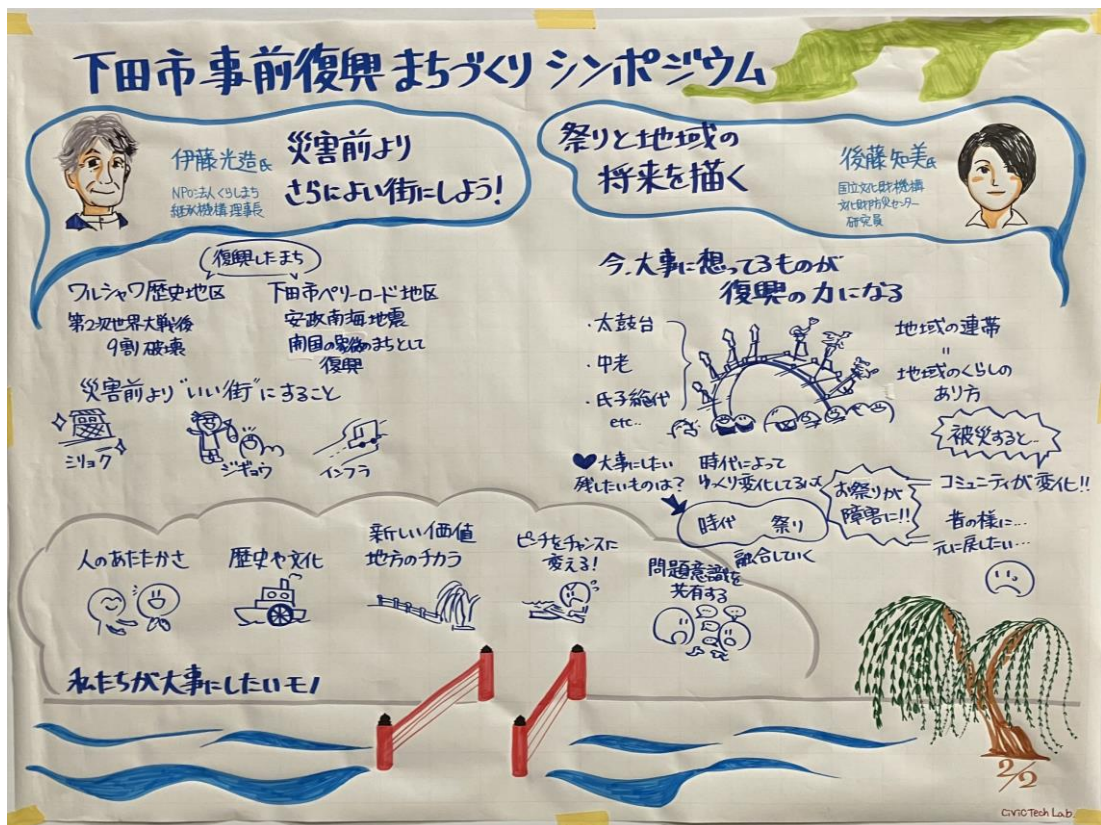 下田市事前復興まちづくりシンポジウム
伊藤光造氏
NPO法人くらしまち
継承機構理事長
災害前より
さらによい街にしよう!
祭りと地域の
将来を描く
後藤知美氏
国立文化財機構
文化財防災センター
研究員
復興したまち
ワルシャワ歴史地区
第2次世界大戦後
9割破壊
下田市ペリーロード地区
安政南海地震
南国の
まちとして
復興
災害前より"いい街"にすること
ミリョク
ジギョウ
インフラ
今、大事に想ってるものが
復興の力になる
・太鼓台
・中老
・氏子総代
etc..
地域の連帯
=
地域のくらしの
あり方
被災すると..
コミュニティが変化!!
大事にしたい
残したいものは?
時代によって
ゆっくり変化してるはず
時代 祭り
融合していく
お祭りが
障害に!!
昔の様に…
元に戻したい…
人のあたたかさ
歴史や文化
新しい価値
地方のチカラ
ピンチをチャンスに
変える!
問題意識を
共有する
私たちが大事にしたいモノ
2/2
CIVIC Tech Lab.